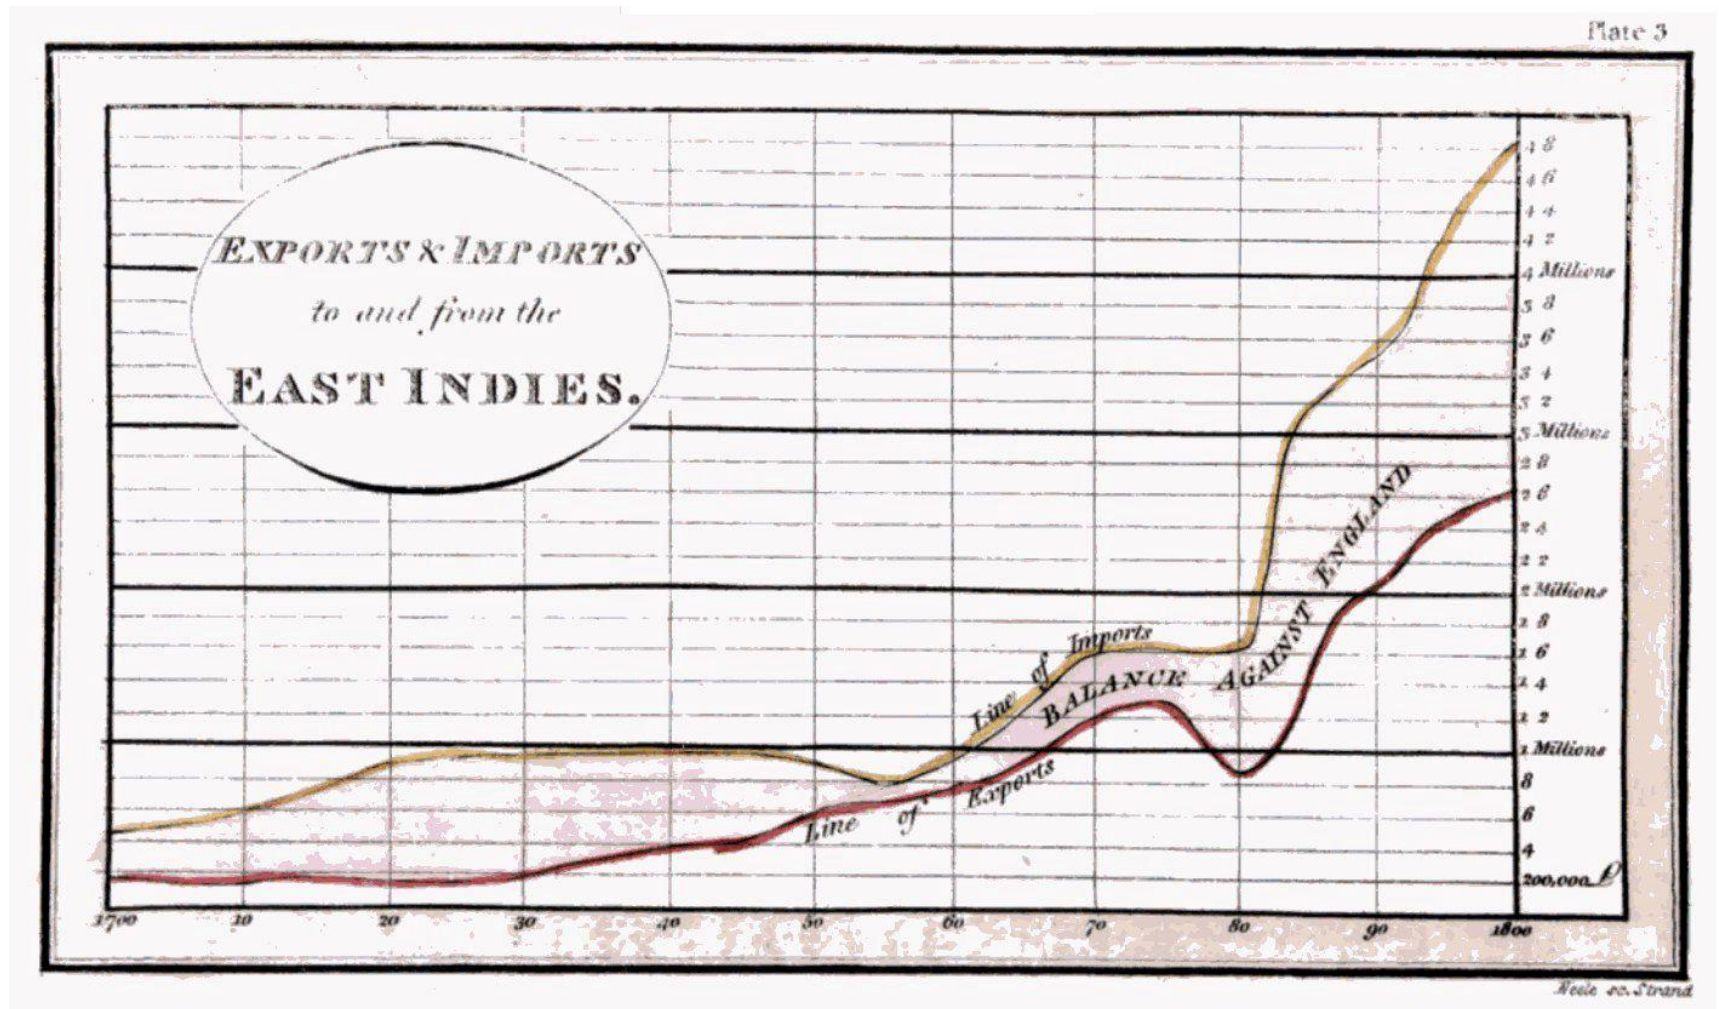 Plate 3
EXPORTS & IMPORTS
to and from the
EAST INDIES.
4 8
4 6
4 4
4 2
4 Millions
3 8
3 6
3 4
3 2
3 Millions
2 8
2 6
2 4
2 2
2 Millions
1 8
1 6
1 4
1 2
1 Millions
8
6
4
200,000 £
Line of Imports
BALANCE AGAINST ENGLAND
Line of Exports
1700 10 20 30 40 50 60 70 80 90 1800
Neele sc. Strand